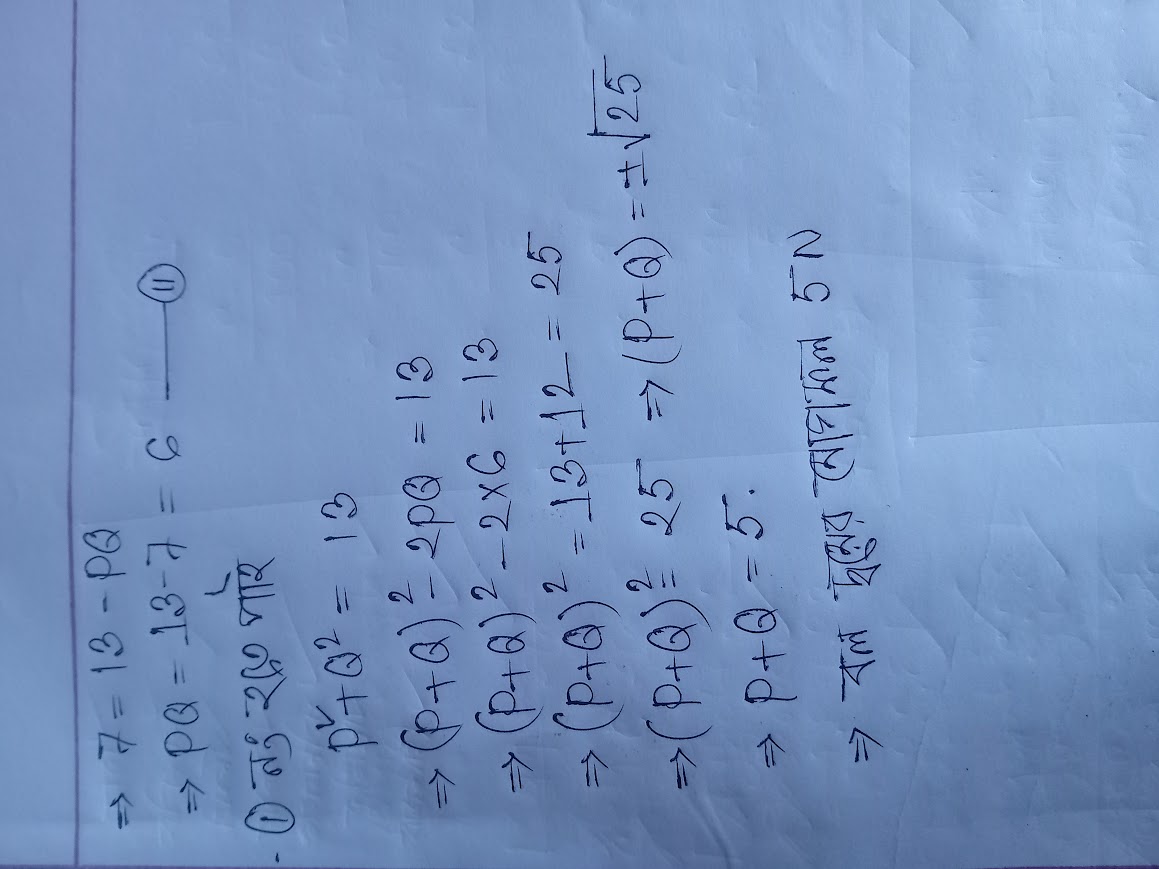 ⇒ 7 = 13 - PQ
⇒ PQ = 13-7 = 6 —— (II)
(I) নং হতে পাই
P² + Q² = 13
⇒ (P+Q)² - 2PQ = 13
⇒ (P+Q)² - 2×6 = 13
⇒ (P+Q)² = 13+12 = 25
⇒ (P+Q)² = 25 ⇒ (P+Q) = ±√25
⇒ P+Q = 5.
⇒ বল দ্বয়ের যোগফল 5 N